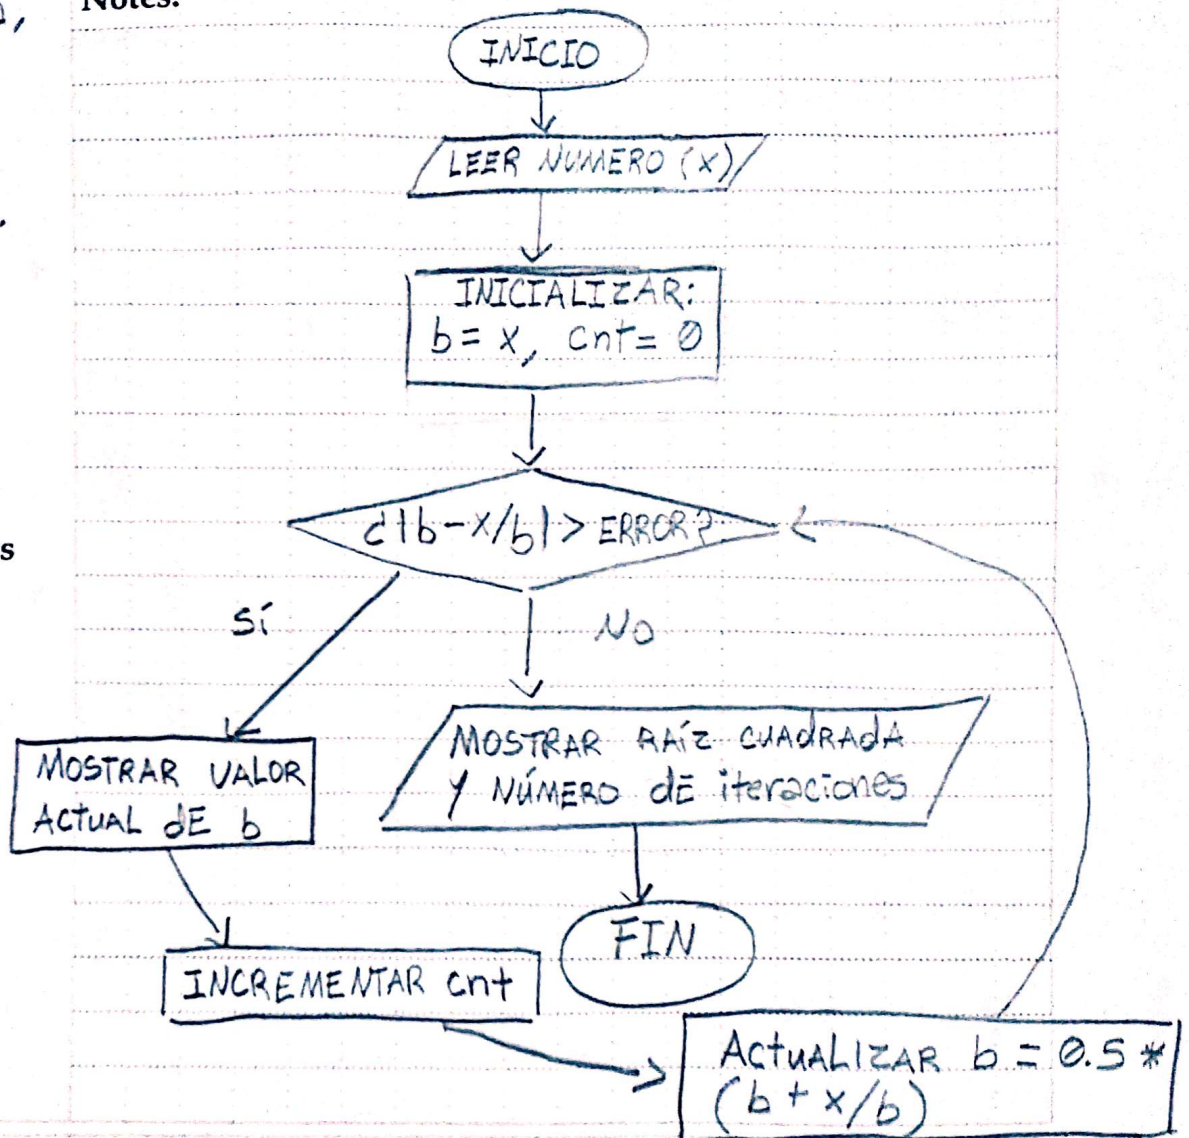 Notes:
INICIO
LEER NUMERO (x)
INICIALIZAR:
b = x, cnt = 0
¿|b - x/b| > ERROR?
SÍ
NO
MOSTRAR VALOR
ACTUAL dE b
MOSTRAR RAÍZ CUAdRAdA
Y NÚMERO dE iteraciones
INCREMENTAR cnt
FIN
ACTUALIZAR b = 0.5 *
(b + x/b)
s